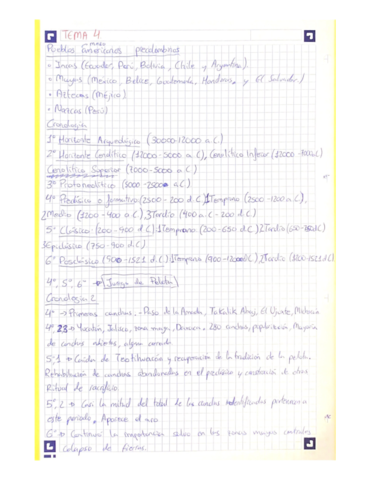 TEMA 4
Pueblos americanos precolombinos
• Incas (Ecuador, Perú, Bolivia, Chile y Argentina)
• Mayas (México, Belice, Guatemala, Honduras y El Salvador)
• Aztecas (Méjico)
• Nazcas (Perú)
Cronología
1º Horizonte Arqueológico (30000-12000 a.C)
2º Horizonte Cenolítico (12000-5000 a.C), Cenolítico Inferior (12000-7000a.C)
Cenolítico Superior (7000-5000 a.C)
3º Protoneolítico (5000-2500 a.C)
4º Preclásico o formativo (2500-200 d.C) 1Temprano (2500-1200 a.C),
2Medio (1200-400 a.C) 3Tardío (400 a.C-200 d.C)
5º Clásico (200-900 d.C) 1Temprano (200-650 d.C) 2Tardío
3Epiclásico (750-900 d.C)
6º Posclásico (900-1521 d.C) 1Temprano (900-1200d.C) 2Tardío (1200-1521 d.C)
4º, 5º, 6º → Juego de Pelota
Cronología 2
4º → Primeras canchas. Paso de la Amada, Takalik Abaj, El Ujuxte,
4º 23 → Yucatán, Jalisco, zona maya, Oaxaca. 280 canchas, Mayoría
de canchas abiertas, alguna cerrada
5º,1 → Caída de Teotihuacán y recuperación de la tradición de la pelota.
Rehabilitación de canchas abandonadas en el preclásico y construcción de otras
Ritual de sacrificio.
5º, 2 → Casi la mitad del total de las canchas identificadas pertenecen a
este periodo. Aparece el aro
6º → Continúa la construcción sobre en las zonas mayas centrales
Colapso de